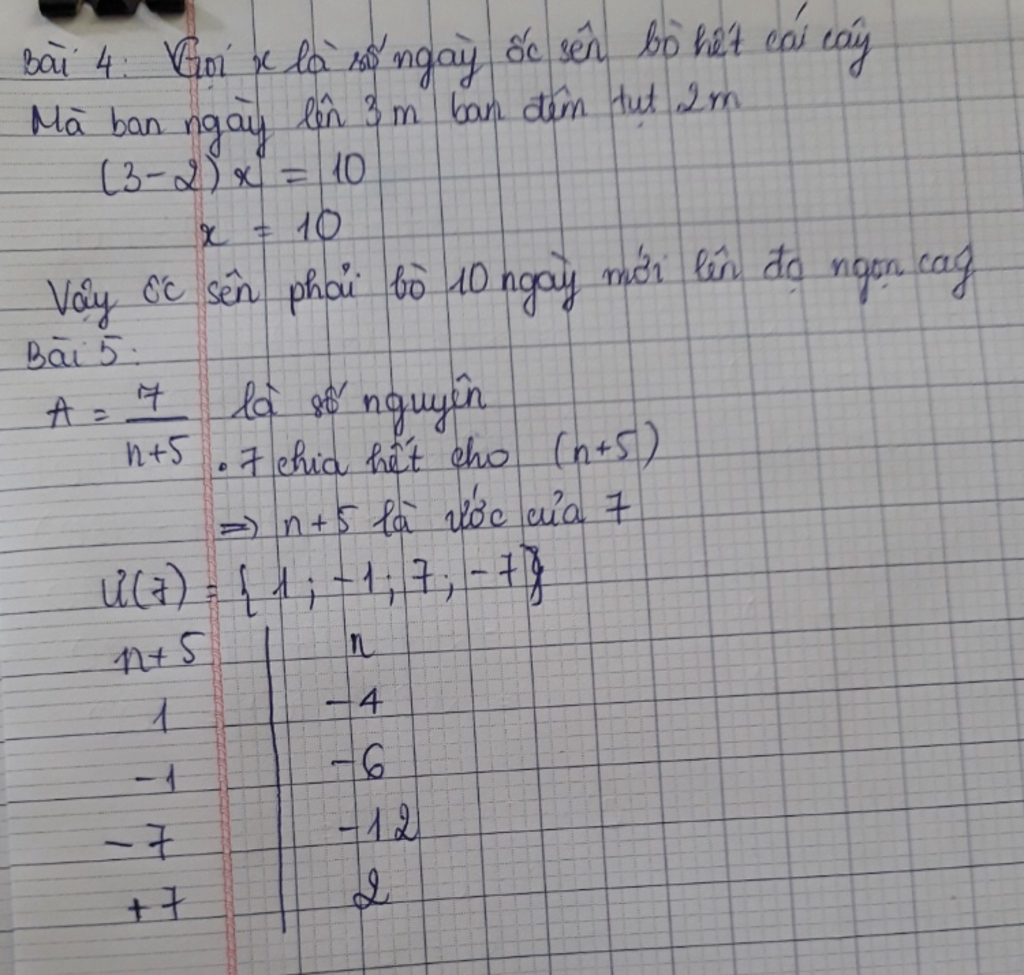 Bài 4: Gọi x là số ngày ốc sên bò hết cái cây
Mà ban ngày lên 3m ban đêm tụt 2m
(3-2)x = 10
x = 10
Vậy ốc sên phải bò 10 ngày mới lên đọ ngọn cay
Bài 5:
A = 7/n+5 là số nguyên
. 7 chia hết cho (n+5)
=> n+5 là ước của 7
Ư(7) = { 1 ; -1 ; 7 ; -7 }
n+5 | n
1 | -4
-1 | -6
-7 | -12
+7 | 2